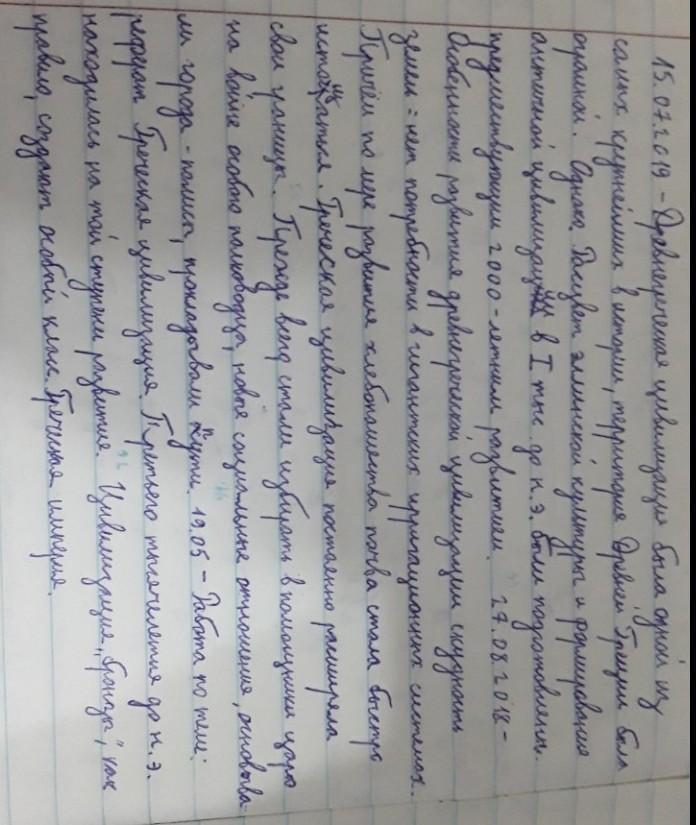 15.07.2019 - Древнегреческая цивилизация была одной из
самых крупнейших в истории, территория Древней Греции была
огромной. Однако. Расцвет эллинской культуры и формирование
античной цивилизации в I тыс до н.э. были подготовлены
предшествующим 2000-летним развитием. 27.08.2018 -
Особенности развития древнегреческой цивилизации скудность
земель = нет потребности в гигантских ирригационных системах.
Причём по мере развития хлебопашества почва стала быстро
истощаться. Греческая цивилизация постоянно расширяла
свои границы. Прежде всего стали избирать в помощники царю
на войне особого полководца, новое социальные отношения, основыва
ли города - полисы, прокладывали пути. 19.05 - Работа по теме:
реферат Греческая цивилизация. Третьего тысячелетия до н.э.
находилась на той ступени развития. Цивилизация „бронзы", как
правило, создают особый класс Греческая империя.